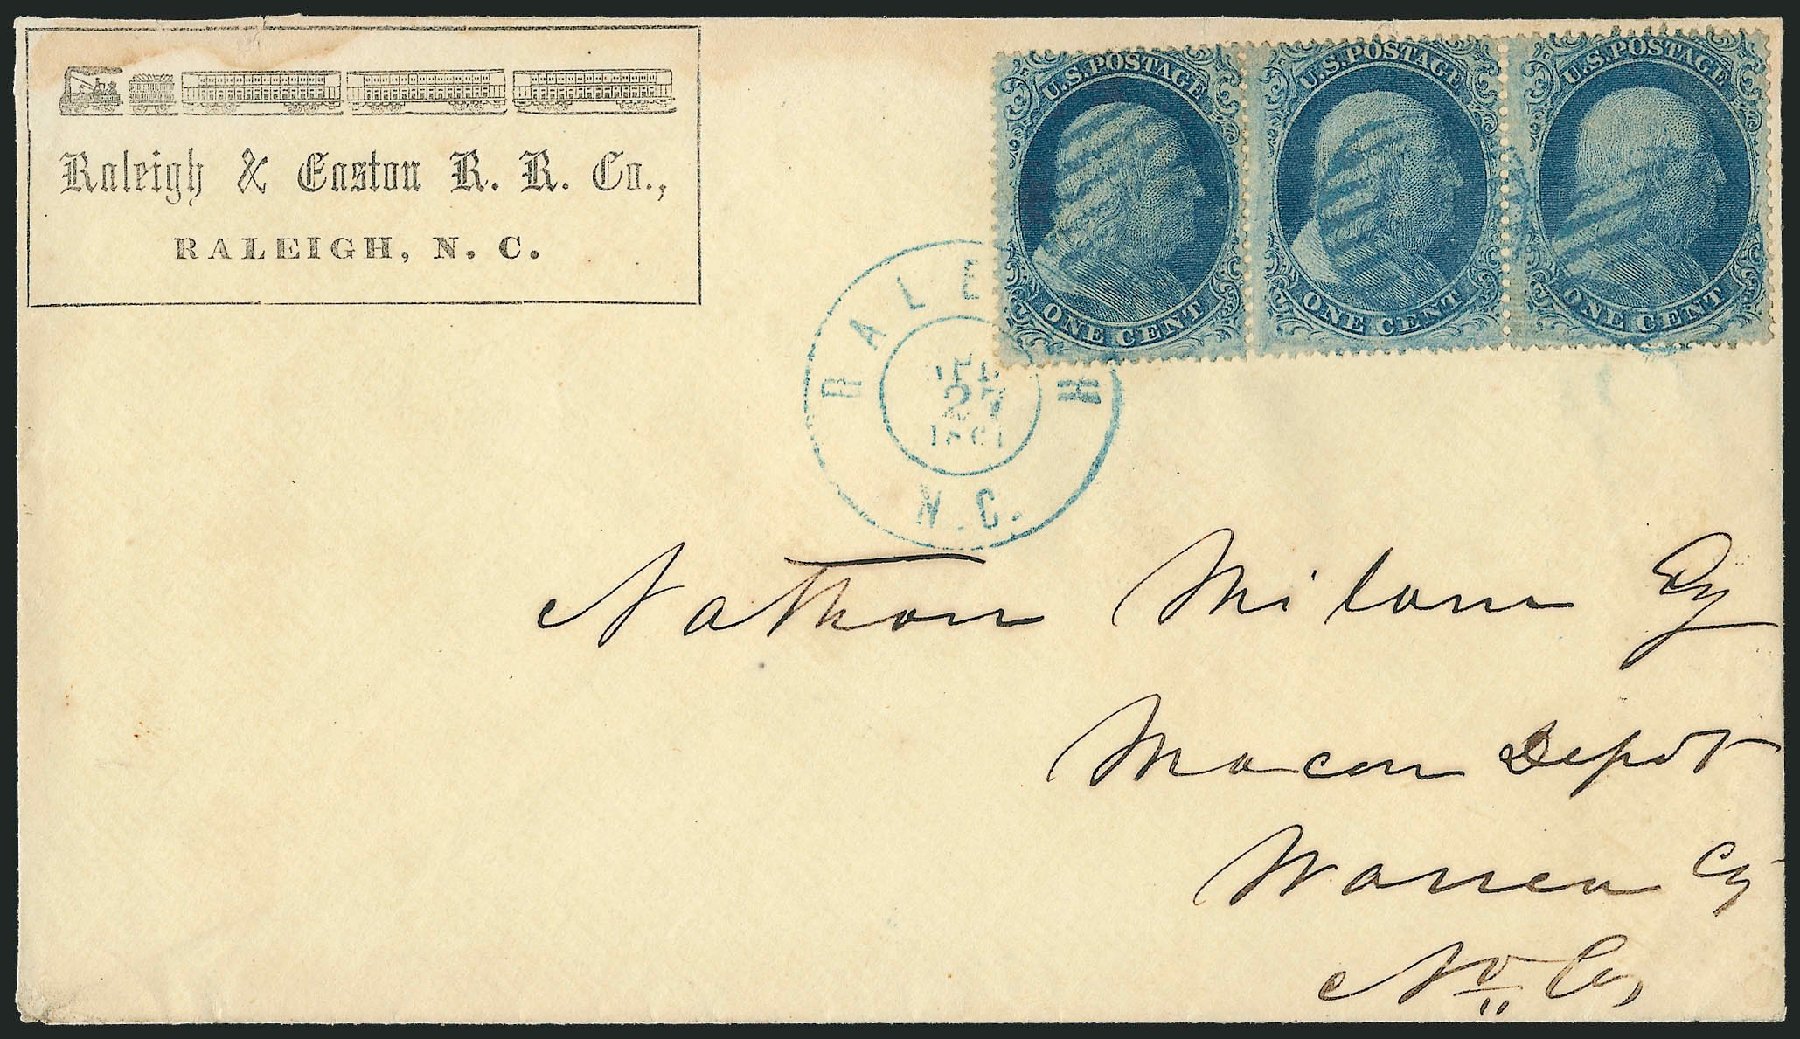 Raleigh & Easton R. R. Co.,
RALEIGH, N. C.
U.S. POSTAGE
ONE CENT
U.S. POSTAGE
ONE CENT
U.S. POSTAGE
ONE CENT
RALE H
27
1861
N.C.
Nathan Milam Esq
Macon Depot
Warren Cy
No Ca,